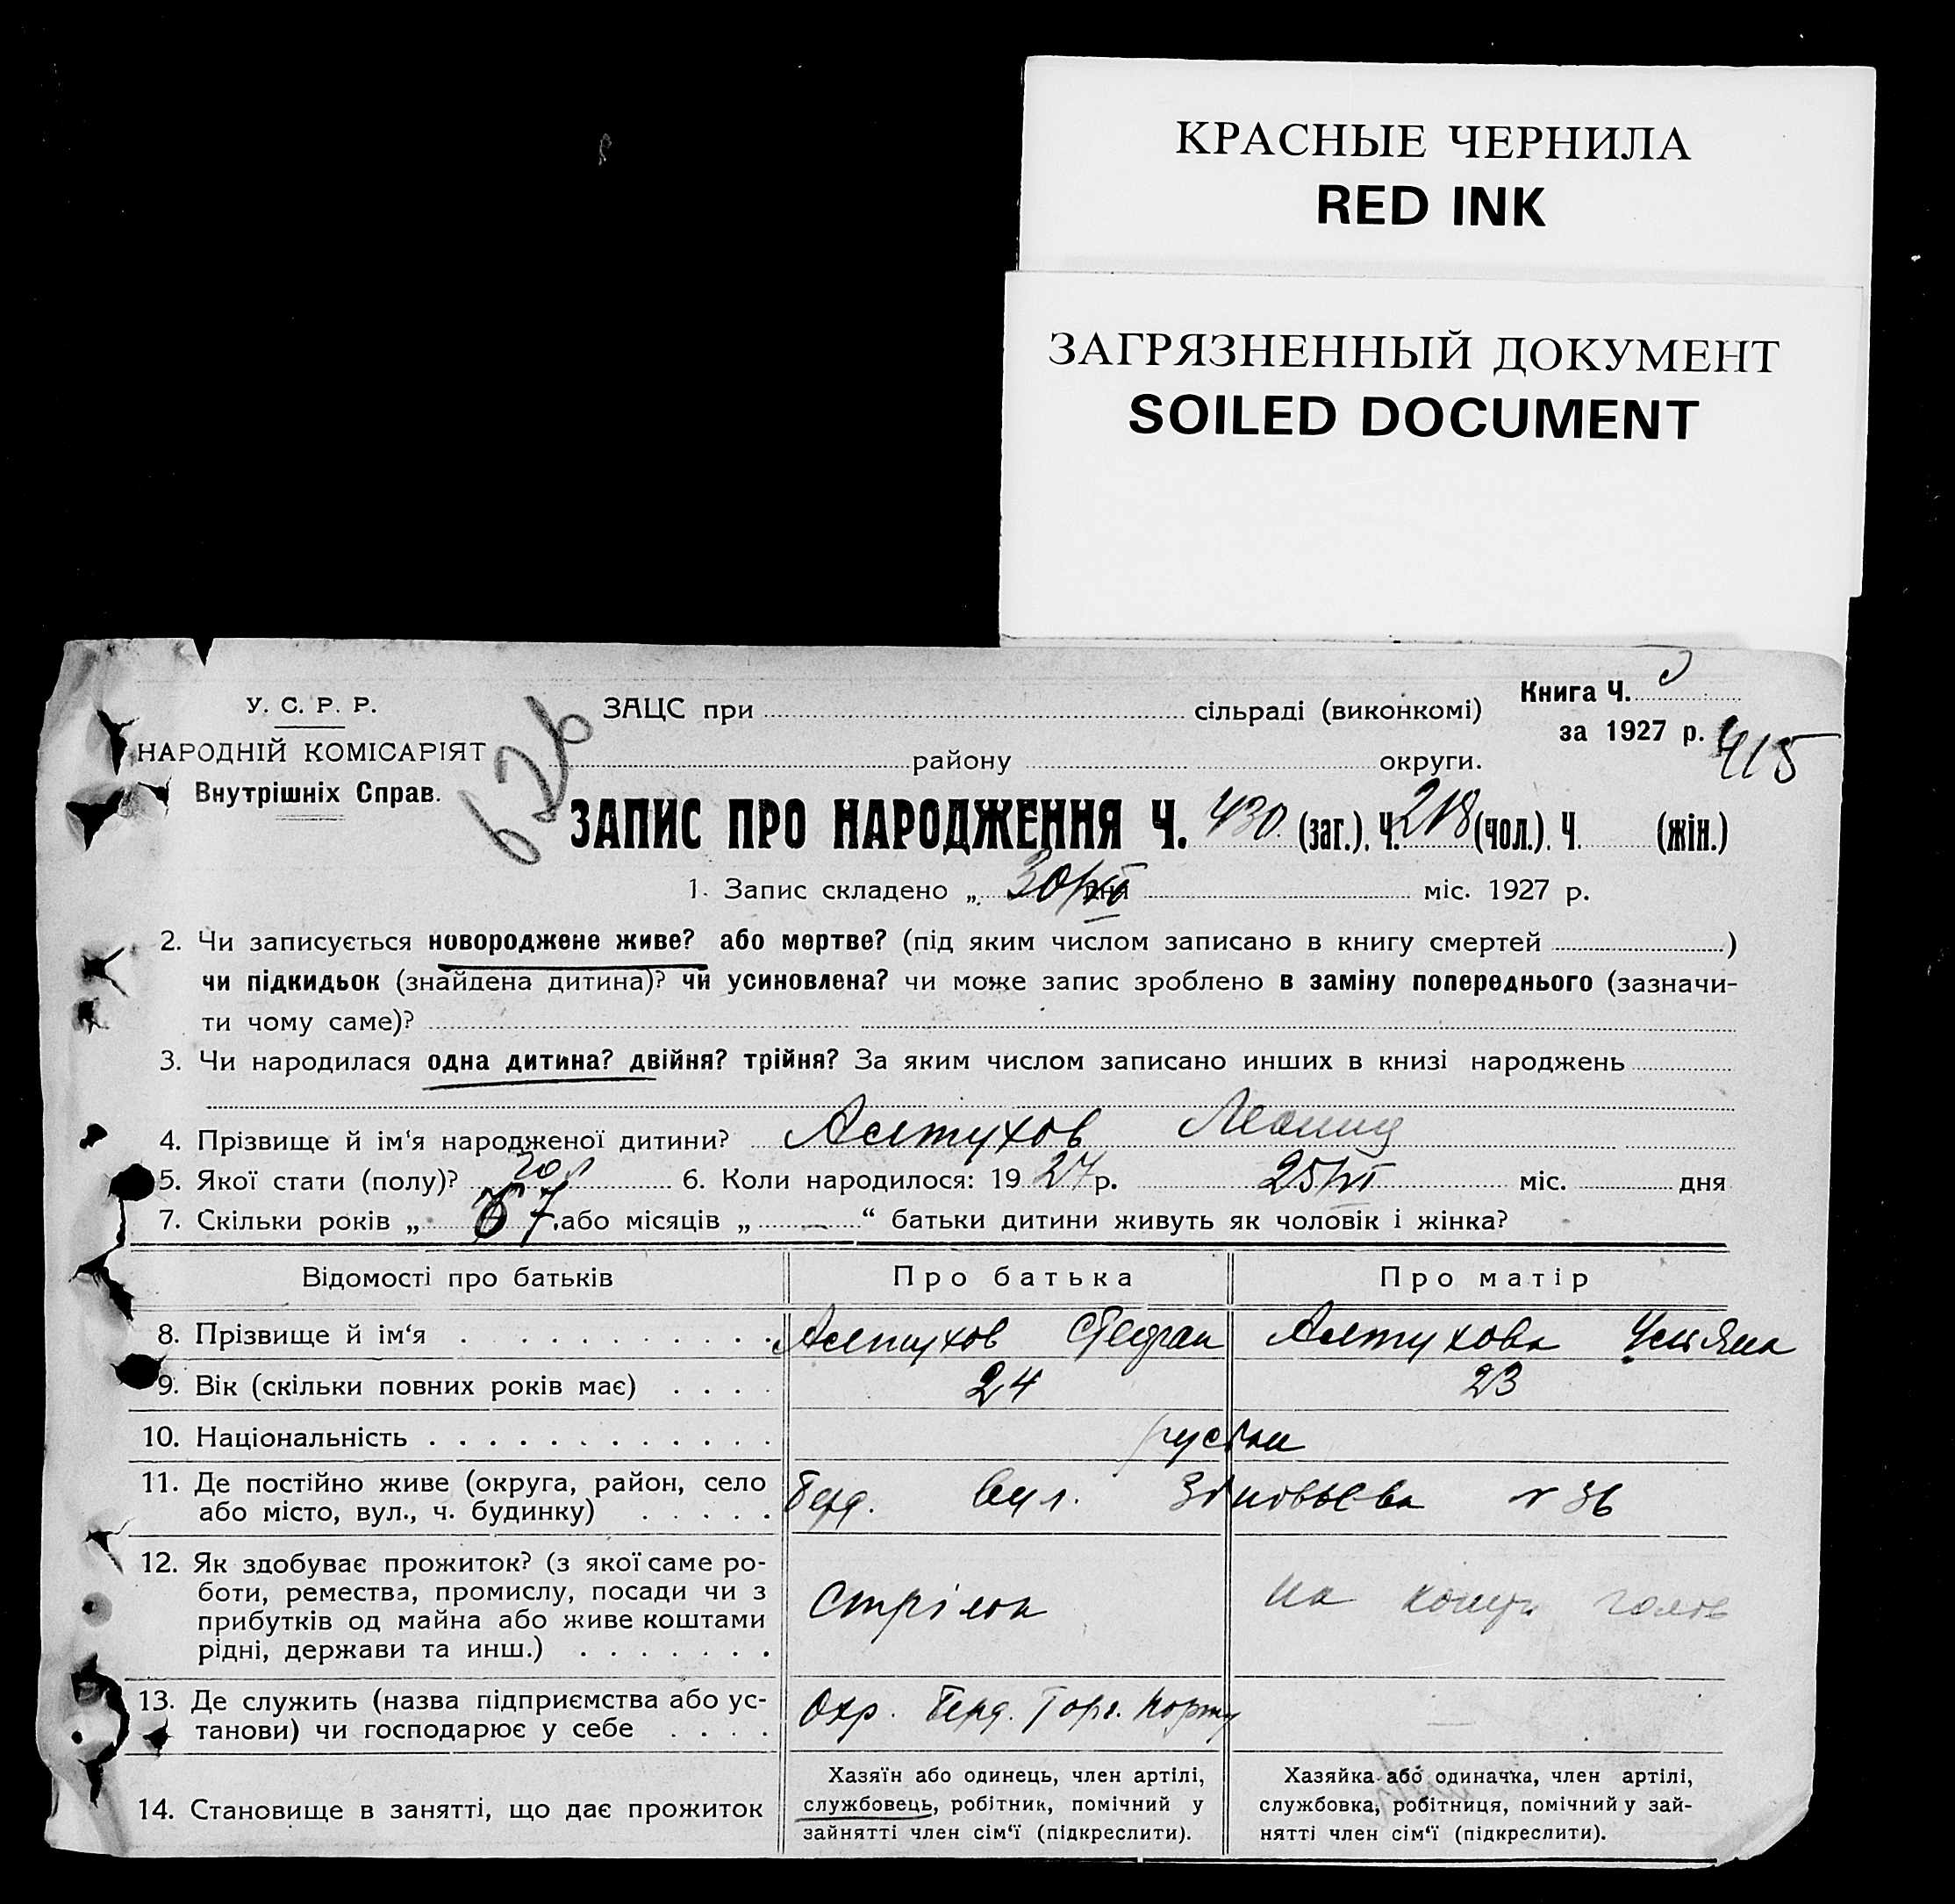 КРАСНЫЕ ЧЕРНИЛА
RED INK
ЗАГРЯЗНЕННЫЙ ДОКУМЕНТ
SOILED DOCUMENT
У. С. Р. Р.
НАРОДНІЙ КОМІСАРІЯТ
Внутрішніх Справ.
626
ЗАЦС при сільраді (виконкомі)
Книга Ч.
за 1927 р.
415
району округи.
ЗАПИС ПРО НАРОДЖЕННЯ Ч. 430 (заг.). Ч. 218 (чол.). Ч. (жін.)
1. Запис складено „ 30/ дня міс. 1927 р.
2. Чи записується новороджене живе? або мертве? (під яким числом записано в книгу смертей )
чи підкидьок (знайдена дитина)? чи усиновлена? чи може запис зроблено в заміну попереднього (зазначи-
ти чому саме)?
3. Чи народилася одна дитина? двійня? трійня? За яким числом записано инших в книзі народжень
4. Прізвище й ім'я народженої дитини? Алтухов Леонид
5. Якої стати (полу)? чол 6. Коли народилося: 1927 р. 25/ міс. дня
7. Скільки років „ 7. або місяців „ — “ батьки дитини живуть як чоловік і жінка?
Відомості про батьків Про батька Про матір
8. Прізвище й ім'я Алтухов Стефан Алтухова
9. Вік (скільки повних років має) 24 23
10. Національність
11. Де постійно живе (округа, район, село
або місто, вул., ч. будинку) Берд. вул. Зіновьєва № 36
12. Як здобуває прожиток? (з якої саме ро-
боти, ремества, промислу, посади чи з
прибутків од майна або живе коштами
рідні, держави та инш.)
Стрілок
на
13. Де служить (назва підприємства або ус-
танови) чи господарює у себе
Охр. Берд. Торг. Порту
—
14. Становище в занятті, що дає прожиток
Хазяїн або одинець, член артілі,
службовець, робітник, помічний у
зайнятті член сім'ї (підкреслити).
Хазяйка або одиначка, член артілі,
службовка, робітниця, помічний у зай-
нятті член сім'ї (підкреслити).